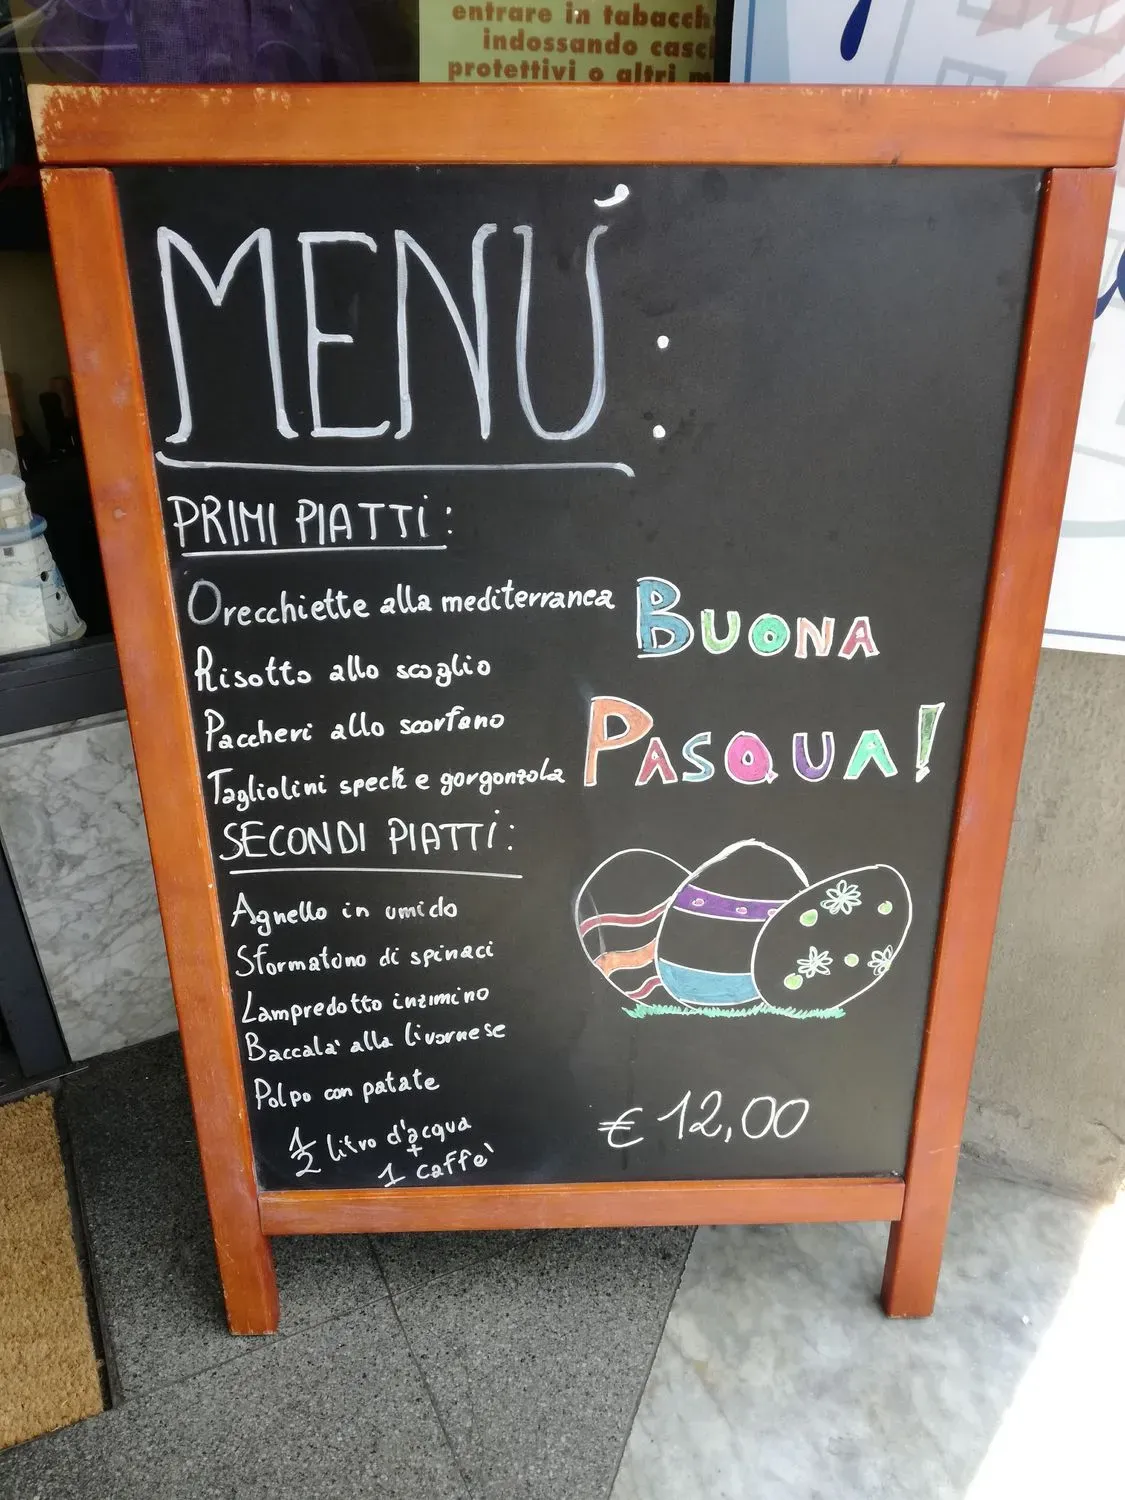 entrare in tabacch
indossando casc
protettivi o altri m
MENÚ:
PRIMI PIATTI:
Orecchiette alla mediterranea
Risotto allo scoglio
Paccheri allo scorfano
Tagliolini speck e gorgonzola
BUONA
PASQUA!
SECONDI PIATTI:
Agnello in umido
Sformatono di spinaci
Lampredotto inzimino
Baccala' alla livornese
Polpo con patate
1/2 litro d'acqua
+
1 caffe'
€ 12,00